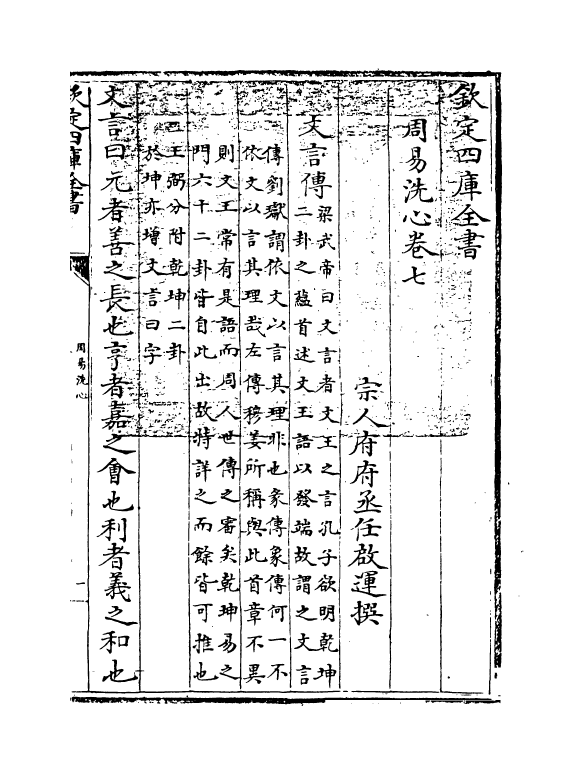 欽定四庫全書
周易洗心卷七
宗人府府丞任啟運撰
文言傳
梁武帝曰文言者文王之言孔子欲明乾坤
二卦之蘊首述文王語以發端故謂之文言
傳劉瓛謂依文以言其理非也彖傳象傳何一不
依文以言其理哉左傳穆姜所稱與此首章不異
則文王常有是語而周人世傳之審矣乾坤易之
門六十二卦皆自此出故特詳之而餘皆可推也
王弼分附乾坤二卦
於坤亦增文言曰字
文言曰元者善之長也亨者嘉之會也利者義之和也
欽定四庫全書
周易洗心
一